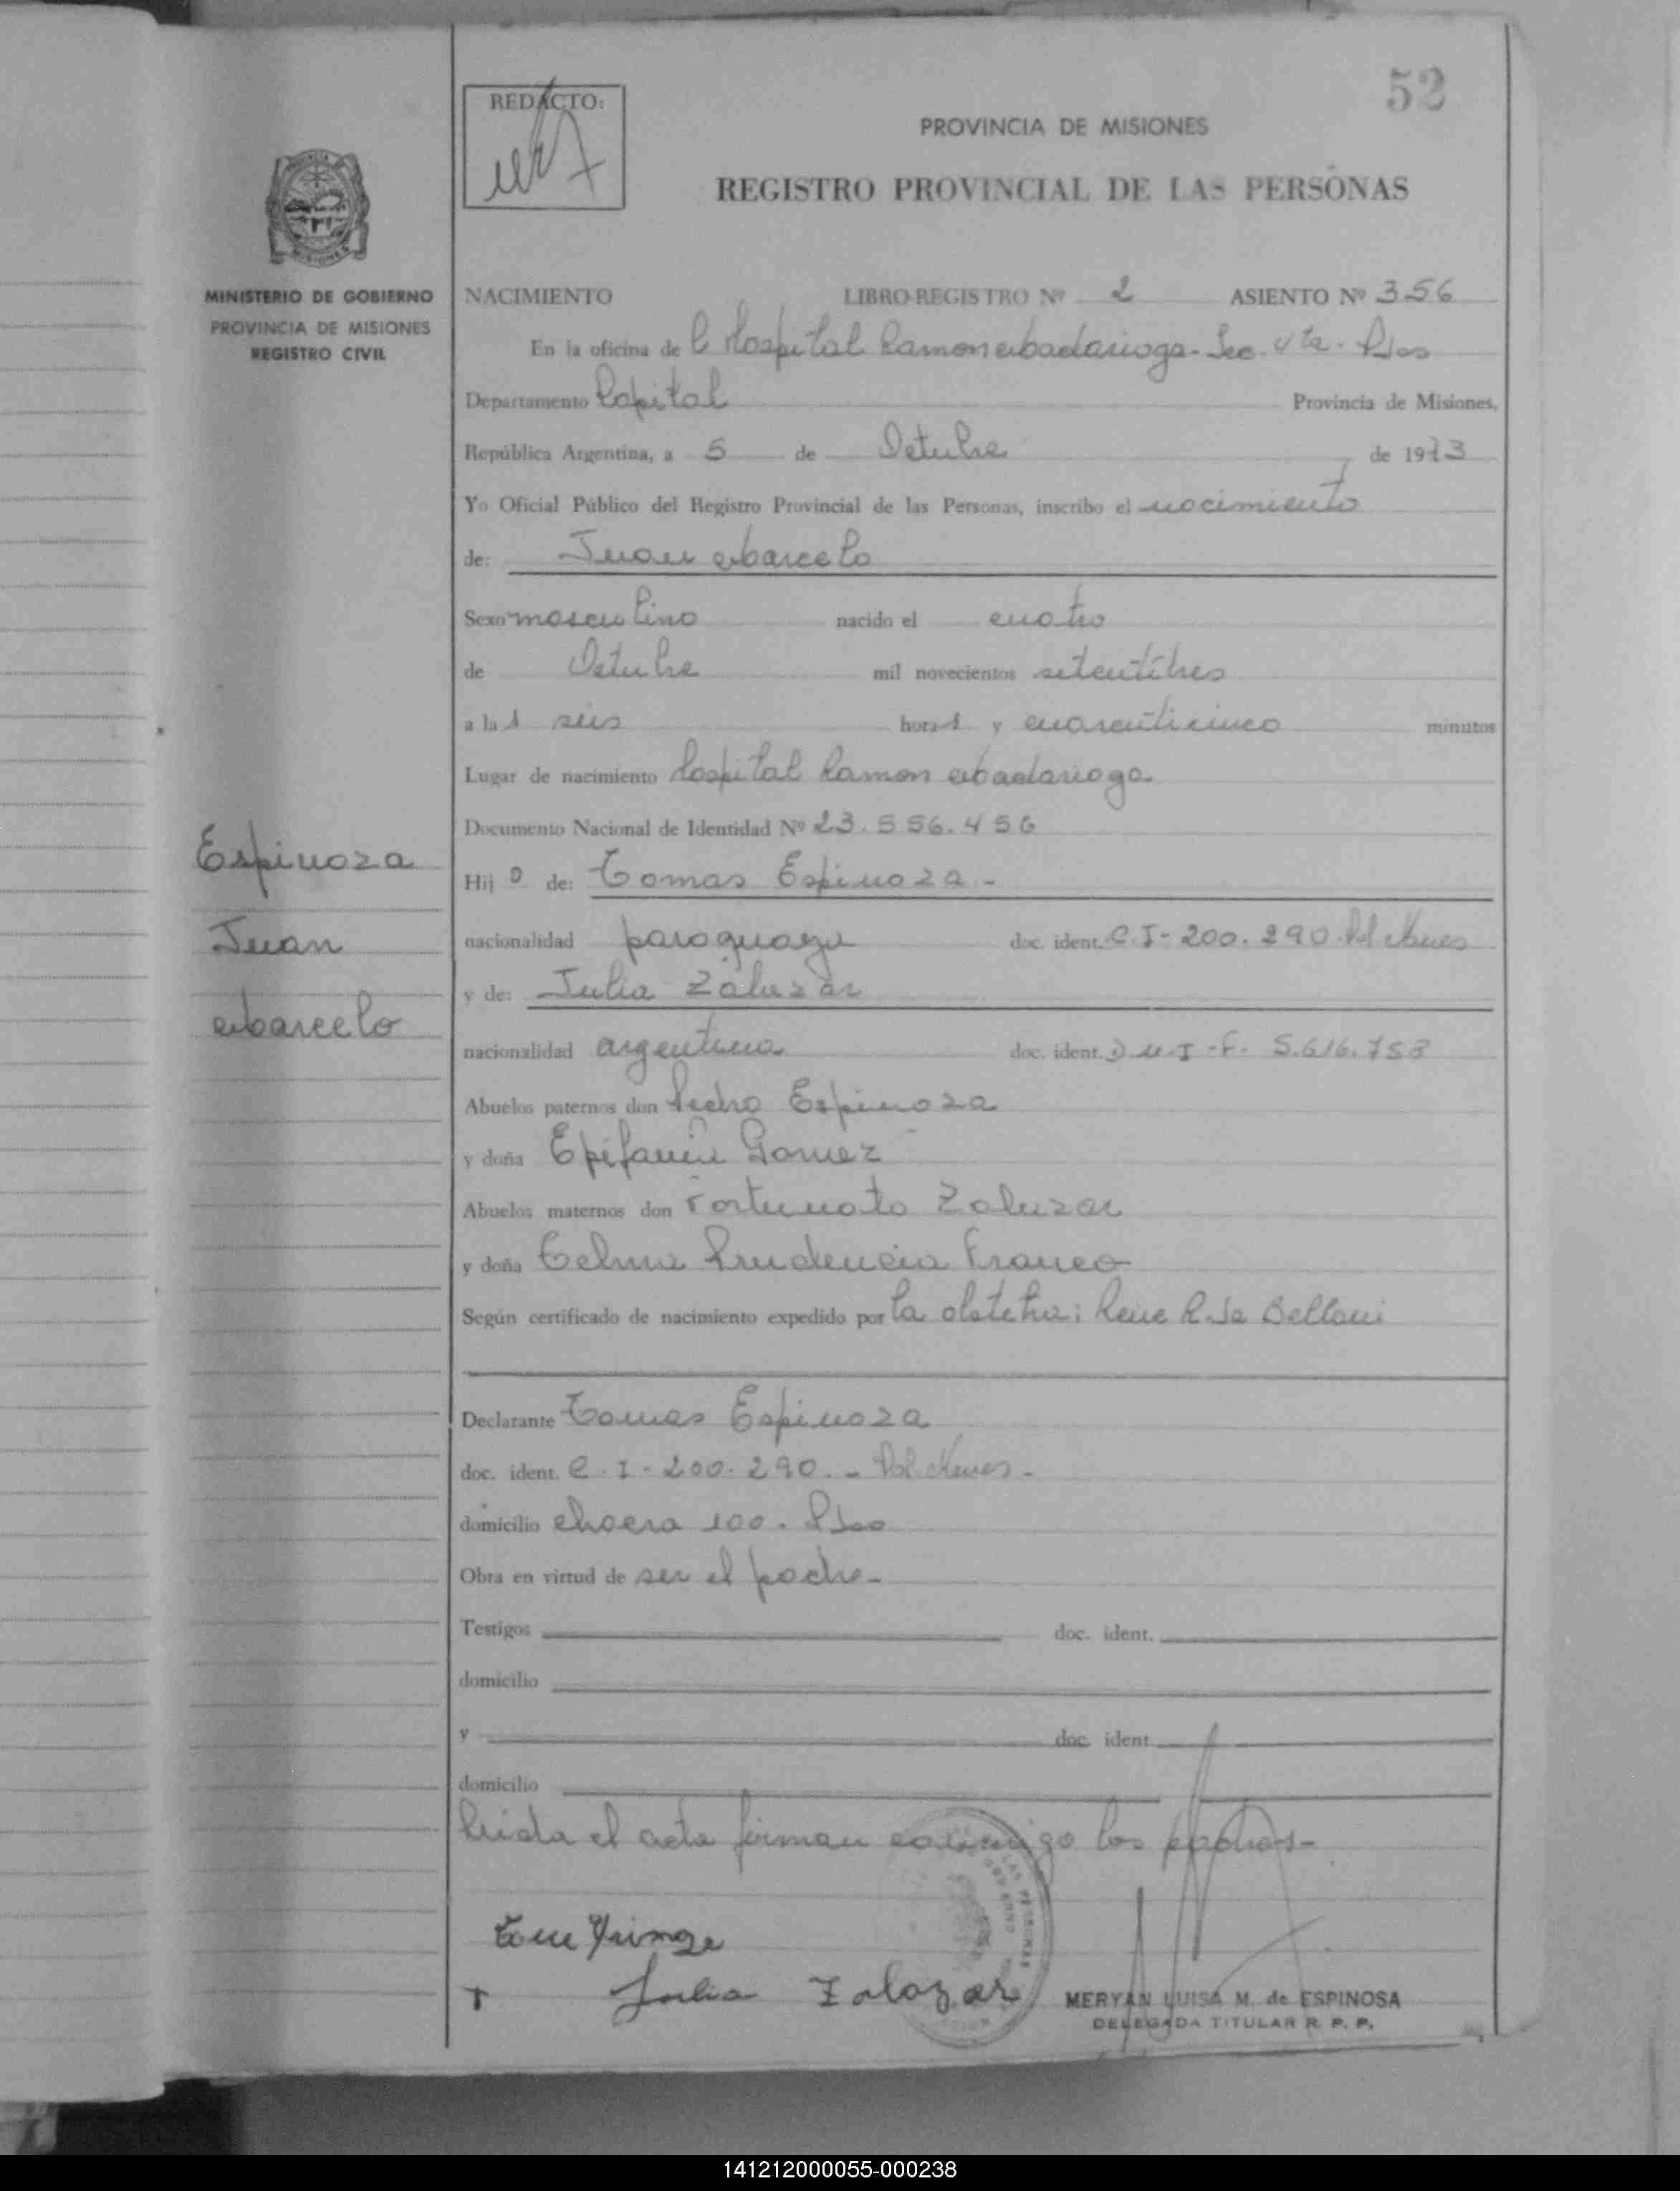 52
REDACTO:
PROVINCIA DE MISIONES
REGISTRO PROVINCIAL DE LAS PERSONAS
MINISTERIO DE GOBIERNO
PROVINCIA DE MISIONES
REGISTRO CIVIL
NACIMIENTO LIBRO-REGISTRO Nº 2 ASIENTO Nº 356
En la oficina de Hospital Ramon Madariaga - Sec. Pdas
Departamento Capital Provincia de Misiones,
República Argentina, a 5 de Octubre de 1973
Yo Oficial Público del Registro Provincial de las Personas, inscribo el nacimiento
de: Juan Marcelo
Sexo masculino nacido el cuatro
de Octubre mil novecientos setentitres
a las seis horas y cuarenticinco minutos
Lugar de nacimiento Hospital Ramon Madariaga
Documento Nacional de Identidad Nº 23.556.456
Espinoza
Juan
Marcelo
Hijo de: Tomas Espinoza -
nacionalidad paraguayu doc. ident. C.I- 200.290. Pol Mnes
y de: Julia Zaluzar
nacionalidad argentina doc. ident. D.N.I -F- 5.616.753
Abuelos paternos don Pedro Espinoza
y doña Epifania Gomez
Abuelos maternos don Fortunato Zaluzar
y doña Telma Prudencia Franco
Según certificado de nacimiento expedido por la obstetra: Rene R. de Belloni
Declarante Tomas Espinoza
doc. ident. C.I- 200.290.- Pol. Mnes.-
domicilio chacra 100. Pdas
Obra en virtud de ser el padre-
Testigos doc. ident.
domicilio
y doc. ident.
domicilio
Leida el acta firman conmigo los padres-
Julia Zalozar
MERYAN LUISA M. de ESPINOSA
DELEGADA TITULAR R. P. P.
141212000055-000238